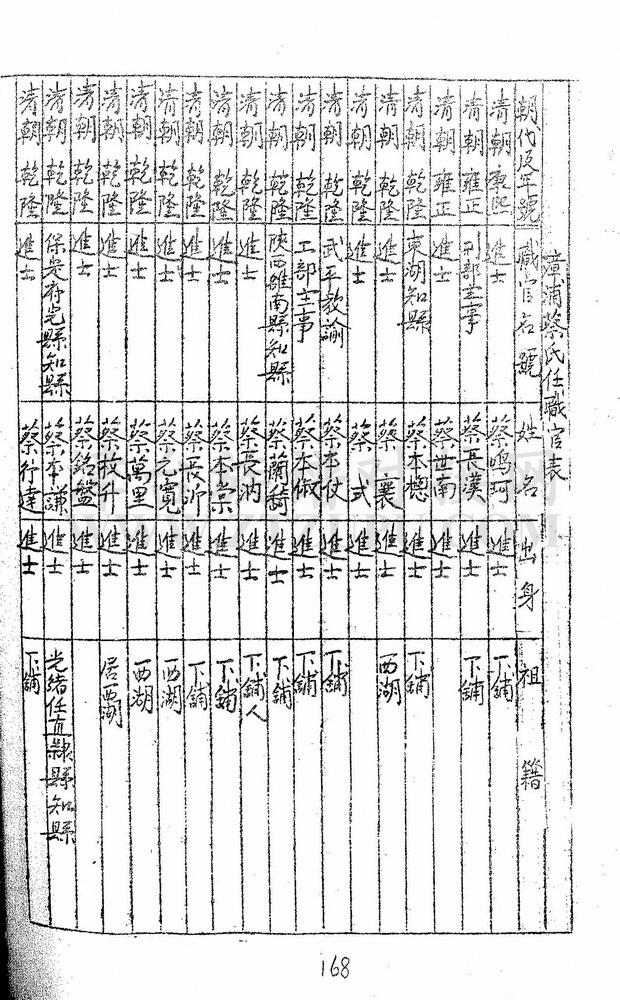 漳浦蔡氏任職官表
朝代及年號 職官名號 姓名 出身 祖籍
清朝康熙 進士 蔡鳴珂 進士 下鋪
清朝雍正 刑部主事 蔡長漢 進士 下鋪
清朝雍正 進士 蔡世南 進士
清朝乾隆 東湖知縣 蔡本樬 進士 下鋪
清朝乾隆 進士 蔡襄 進士 西湖
清朝乾隆 進士 蔡式 進士
清朝乾隆 武平教諭 蔡本仗 進士 下鋪
清朝乾隆 工部主事 蔡本俶 進士 下鋪
清朝乾隆 陝西雒南縣知縣 蔡蘭 進士 下鋪
清朝乾隆 進士 蔡長汭 進士 下鋪人
清朝乾隆 進士 蔡本崇 進士 下鋪
清朝乾隆 進士 蔡長沂 進士 下鋪
清朝乾隆 進士 蔡元寬 進士 西湖
清朝乾隆 進士 蔡萬里 進士 西湖
清朝乾隆 進士 蔡枚升 進士 居西湖
清朝乾隆 進士 蔡銘盤 進士
清朝乾隆 保定府完縣知縣 蔡本謙 進士 光緒任直隸縣知縣
清朝乾隆 進士 蔡行達 進士 下鋪
168